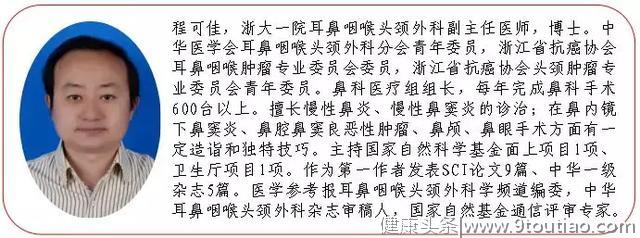 程可佳，浙大一院耳鼻咽喉头颈外科副主任医师，博士。中
华医学会耳鼻咽喉头颈外科分会青年委员，浙江省抗癌协会
耳鼻咽喉肿瘤专业委员会委员，浙江省抗癌协会头颈肿瘤专
业委员会青年委员。鼻科医疗组组长，每年完成鼻科手术
600台以上。擅长慢性鼻炎、慢性鼻窦炎的诊治；在鼻内镜
下鼻窦炎、鼻腔鼻窦良恶性肿瘤、鼻颅、鼻眼手术方面有一
定造诣和独特技巧。主持国家自然科学基金面上项目1项、
卫生厅项目1项。作为第一作者发表SCI论文9篇、中华一级
杂志5篇。医学参考报耳鼻咽喉头颈外科学频道编委，中华
耳鼻咽喉头颈外科杂志审稿人，国家自然基金通信评审专家。
健康头条
www.9toutiao.com